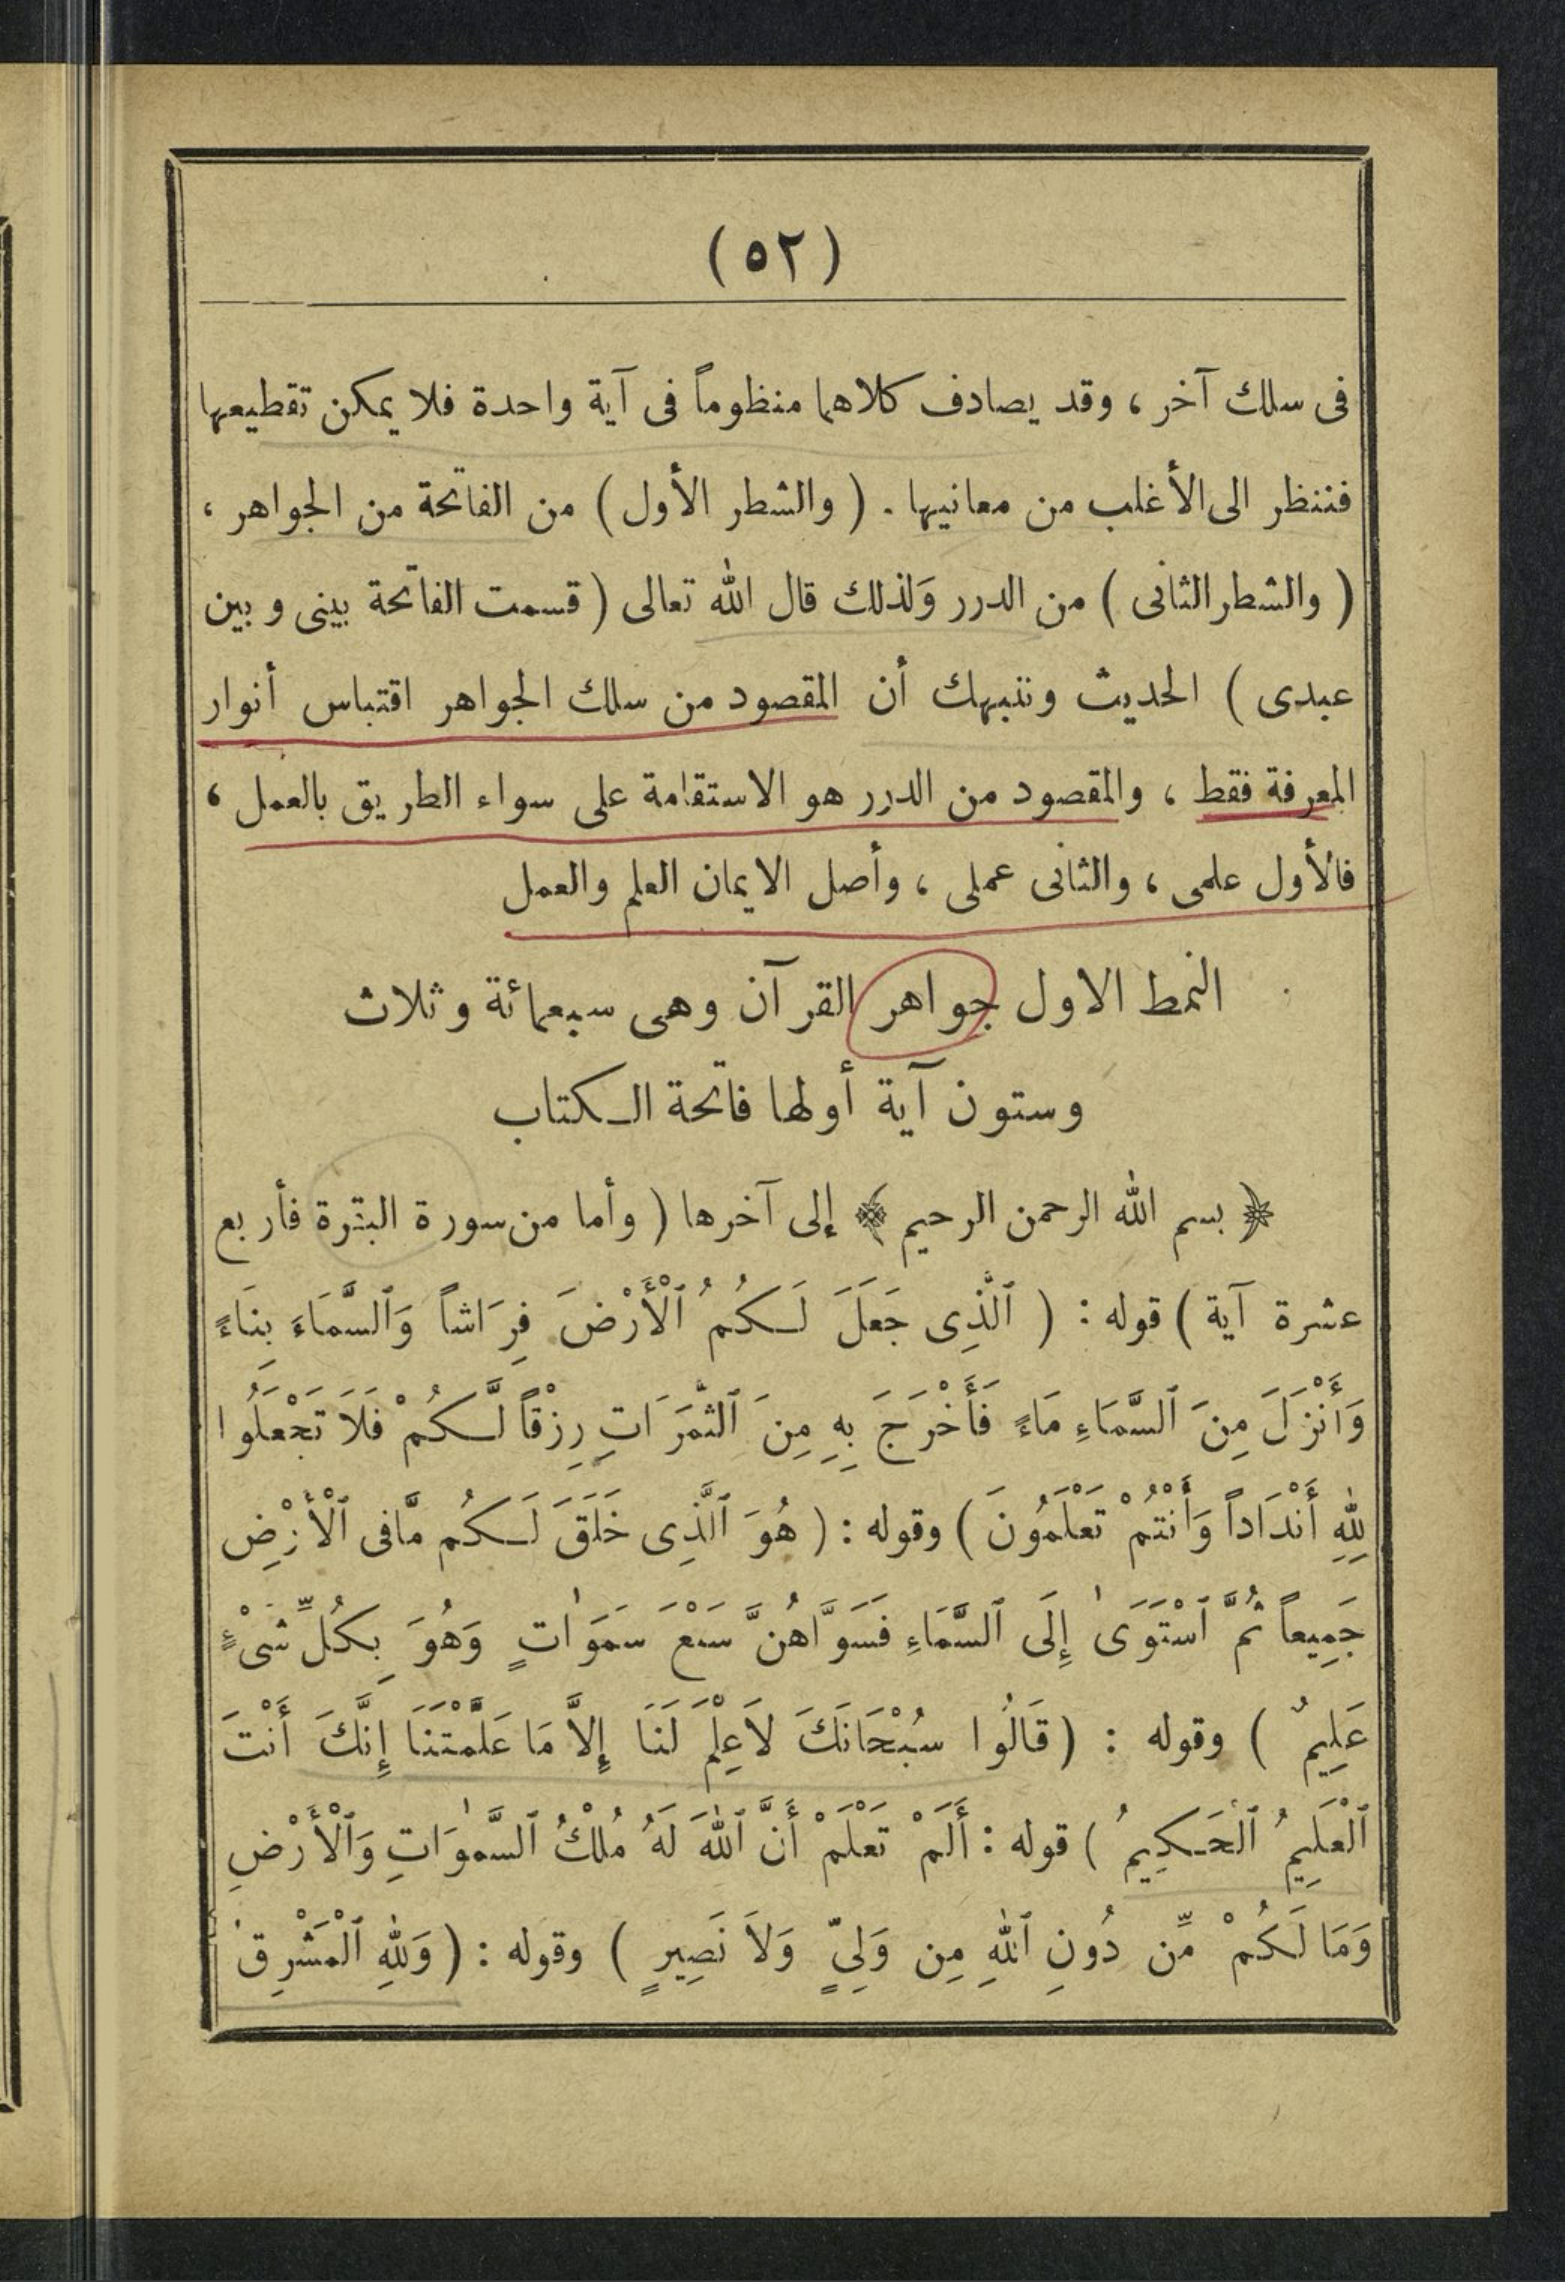 ( ٥٢ )
فى سلك آخر ، وقد يصادف كلاهما منظوماً فى آية واحدة فلا يمكن تقطيعها
فننظر الى الأغلب من معانيها . ( والشطر الأول ) من الفاتحة من الجواهر ،
( والشطر الثانى ) من الدرر وَلذلك قال الله تعالى ( قسمت الفاتحة بينى و بين
عبدى ) الحديث وننبهك أن المقصود من سلك الجواهر اقتباس أنوار
المعرفة فقط ، والمقصود من الدرر هو الاستقامة على سواء الطريق بالعمل ،
فالأول علمى ، والثانى عملى ، وأصل الايمان العلم والعمل
النمط الاول جواهر القرآن وهى سبعمائة وثلاث
وستون آية أولها فاتحة الكتاب
﴿ بسم الله الرحمن الرحيم ﴾ إلى آخرها ( وأما من سورة البقرة فأربع
عشرة آية ) قوله : ( ٱلَّذِى جَعَلَ لَكُمُ ٱلْأَرْضَ فِرَاشاً وَٱلسَّمَاءَ بِنَاءً
وَأَنْزَلَ مِنَ ٱلسَّمَاءِ مَاءً فَأَخْرَجَ بِهِ مِنَ ٱلثَّمَرَاتِ رِزْقاً لَّكُمْ فَلَا تَجْعَلُوا
لِلهِ أَنْدَاداً وَأَنْتُمْ تَعْلَمُونَ ) وقوله : ( هُوَ ٱلَّذِى خَلَقَ لَكُم مَّافى ٱلْأَرْضِ
جَمِيعاً ثُمَّ ٱسْتَوَىٰ إِلَى ٱلسَّمَاءِ فَسَوَّاهُنَّ سَبْعَ سَمَوَاتٍ وَهُوَ بِكُلِّ شَىْءٍ
عَلِيمٌ ) وقوله : ( قَالُوا سُبْحَانَكَ لَاعِلْمَ لَنَا إِلَّا مَا عَلَّمْتَنَا إِنَّكَ أَنْتَ
ٱلْعَلِيمُ ٱلْحَكِيمُ ) قوله : أَلَمْ تَعْلَمْ أَنَّ ٱللهَ لَهُ مُلْكُ ٱلسَّمٰوَاتِ وَٱلْأَرْضِ
وَمَا لَكُمْ مِّن دُونِ ٱللهِ مِن وَلِىٍّ وَلَا نَصِيرٍ ) وقوله : ( وَلِلهِ ٱلْمَشْرِقُ